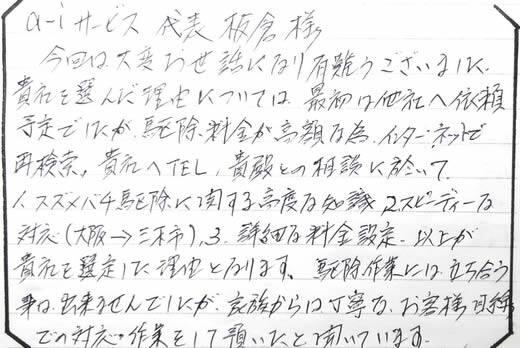 a-iサービス 代表 板倉様
今回は大変お世話になり有難うございました。
貴社を選んだ理由については、最初は他社へ依頼
予定でしたが、駆除料金が高額な為、インターネットで
再検索、貴社へTEL、貴殿との相談に於いて、
1.スズメバチ駆除に関する高度な知識 2.スピーディーな
対応(大阪→三木市)、3.詳細な料金設定、以上が
貴社を選定した理由となります、駆除作業には立ち合う
事は出来ませんでしたが、家族からは丁寧な、お客様目線
での対応・作業をして頂いたと聞いています。